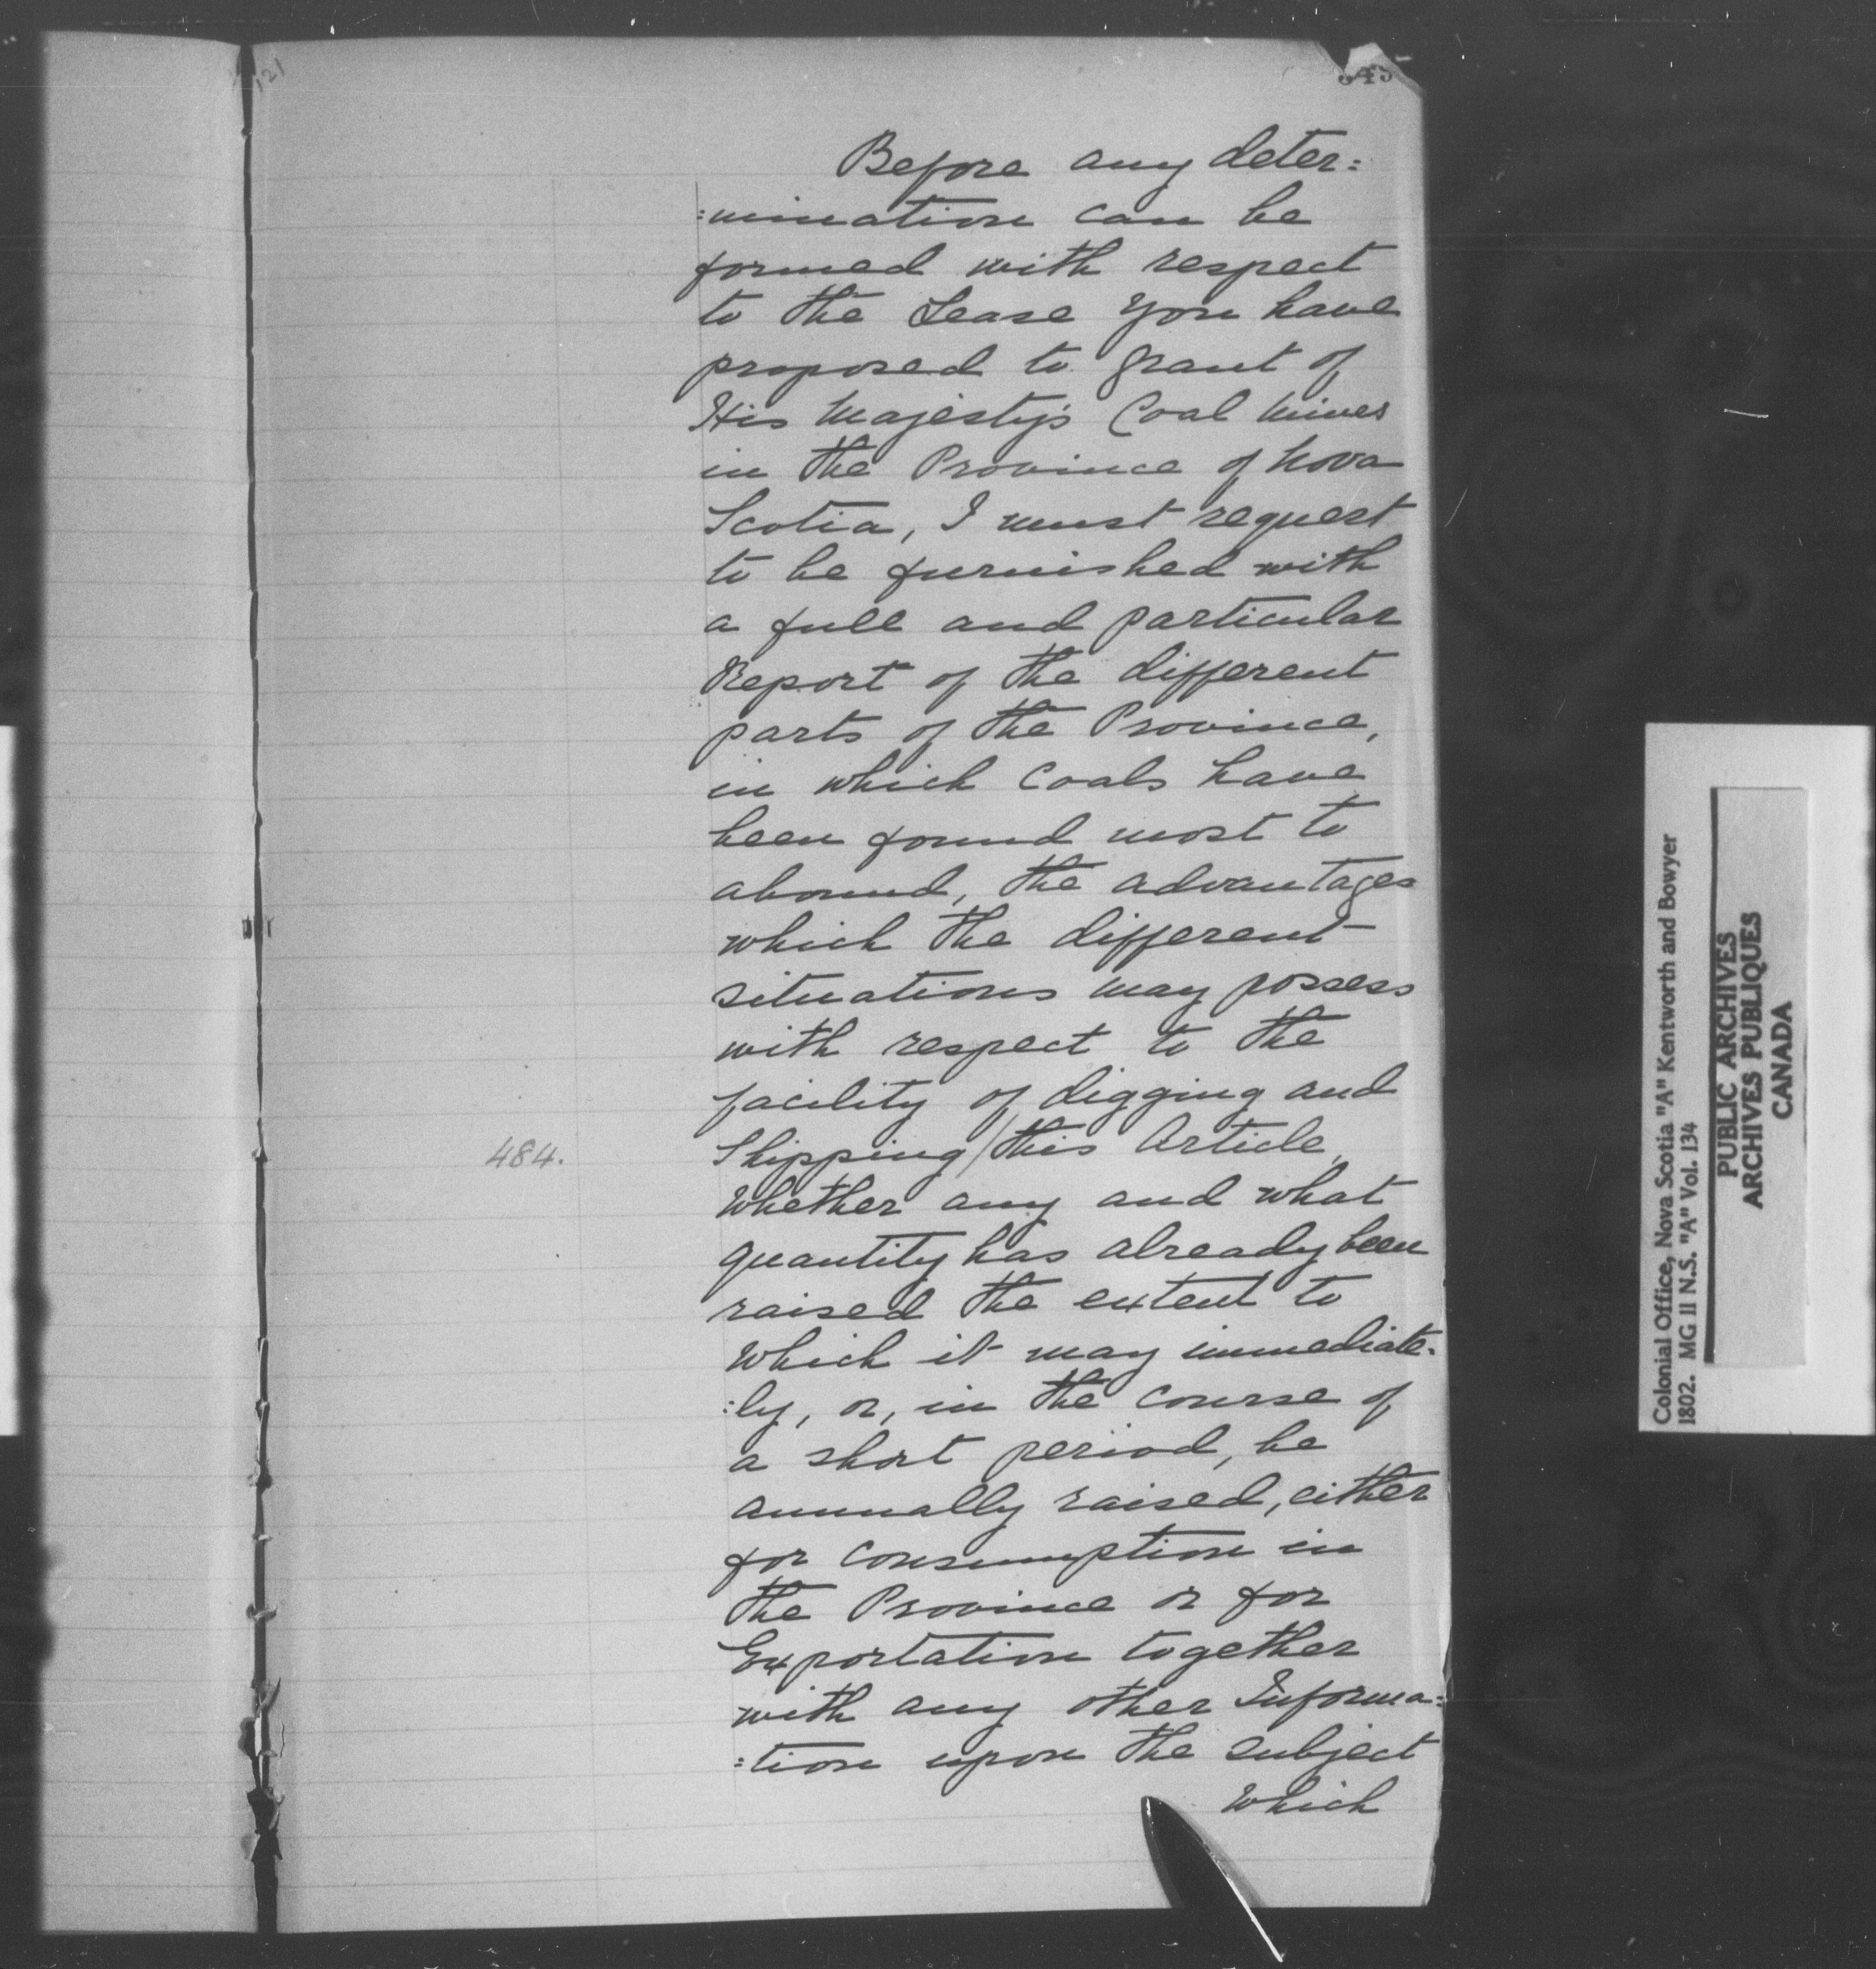 121
345
Before any deter=
:mination can be
formed with respect
to the Lease you have
proposed to grant of
His Majesty's Coal Mines
in the Province of Nova
Scotia, I must request
to be furnished with
a full and particular
Report of the different
parts of the Province,
in which Coals have
been found most to
abound, the advantages
which the different
situations may possess
with respect to the
facility of digging and
484.
Shipping/this Article,
Whether any and what
quantity has already been
raised the extent to
which it may immediate-
:ly, or, in the course of
a short period, be
annually raised, either
for consumption in
the Province or for
Exportation together
with any other Informa=
:tion upon the subject
which
Colonial Office, Nova Scotia "A" Kentworth and Bowyer
1802. MG 11 N.S. "A" Vol. 134
PUBLIC ARCHIVES
ARCHIVES PUBLIQUES
CANADA